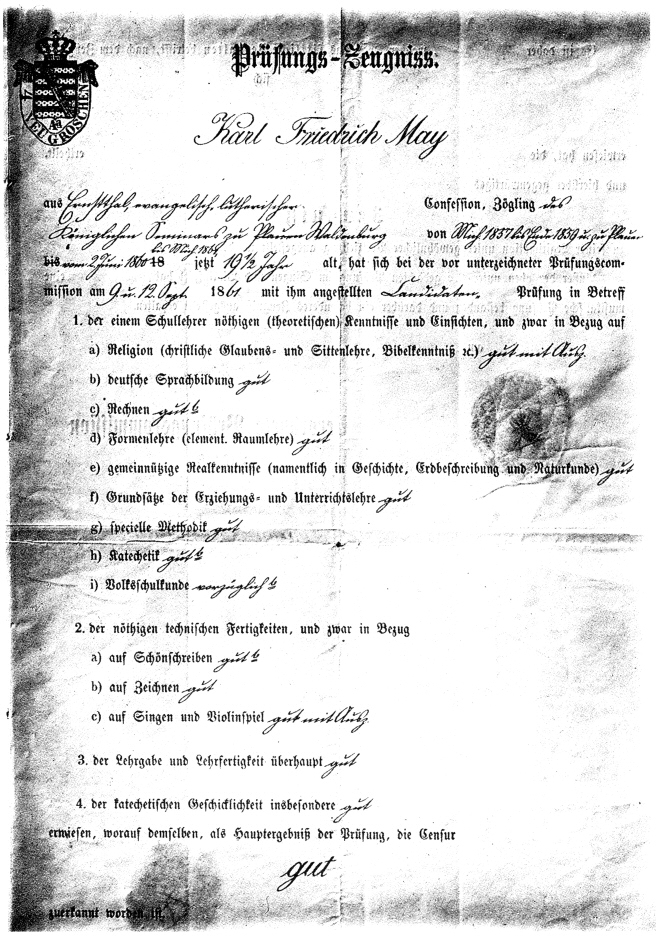 Prüfungs-Zeugniss.
NEUGROSCHEN
Karl Friedrich May
aus Ernstthal, evangelisch-lutherischer Confession, Zögling des
Königlichen Seminars zu Plauen Waldenburg von Mich 1857 bis End. 1859 u. zu Plauen
bis Mich 1861
bis vom 2 Juni 1860 18 jetzt 19 1/2 Jahr alt, hat sich bei der vor unterzeichneter Prüfungscom-
mission am 9 u. 12. Sept. 1861 mit ihm angestellten Candidaten. Prüfung in Betreff
1. der einem Schullehrer nöthigen (theoretischen) Kenntnisse und Einsichten, und zwar in Bezug auf
a) Religion (christliche Glaubens- und Sittenlehre, Bibelkenntniß ꝛc.) gut mit Ausz.
b) deutsche Sprachbildung gut
c) Rechnen gut b
d) Formenlehre (element. Raumlehre) gut
e) gemeinnützige Realkenntnisse (namentlich in Geschichte, Erdbeschreibung und Naturkunde) gut
f) Grundsätze der Erziehungs- und Unterrichtslehre gut
g) specielle Methodik gut
h) Katechetik gut b
i) Volksschulkunde vorzüglich b
2. der nöthigen technischen Fertigkeiten, und zwar in Bezug
a) auf Schönschreiben gut b
b) auf Zeichnen gut
c) auf Singen und Violinspiel gut mit Ausz.
3. der Lehrgabe und Lehrfertigkeit überhaupt gut
4. der katechetischen Geschicklichkeit insbesondere gut
erwiesen, worauf demselben, als Hauptergebniß der Prüfung, die Censur
gut
zuerkannt worden ist.